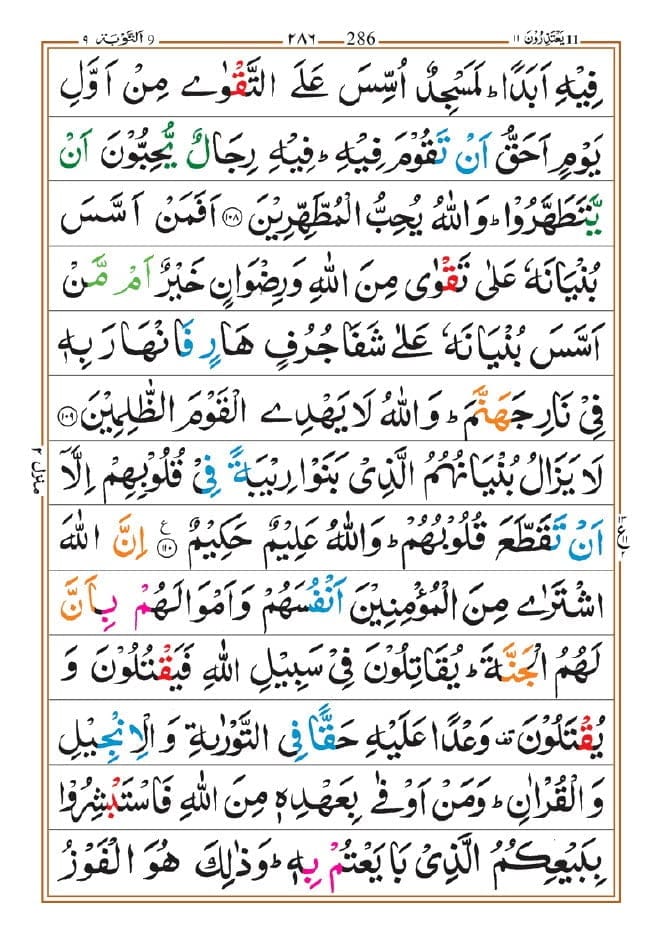 ٩ اَلتَّوْبَة 9 ٢٨٦ 286 يَعْتَذِرُوْنَ ١١ 11
فِيْهِ اَبَدًا ؕ لَمَسْجِدٌ اُسِّسَ عَلَى التَّقْوٰى مِنْ اَوَّلِ
يَوْمٍ اَحَقُّ اَنْ تَقُوْمَ فِيْهِ ؕ فِيْهِ رِجَالٌ يُّحِبُّوْنَ اَنْ
يَّتَطَهَّرُوْا ؕ وَاللّٰهُ يُحِبُّ الْمُطَّهِّرِيْنَ ﴿۱۰۸﴾ اَفَمَنْ اَسَّسَ
بُنْيَانَهٗ عَلٰى تَقْوٰى مِنَ اللّٰهِ وَرِضْوَانٍ خَيْرٌ اَمْ مَّنْ
اَسَّسَ بُنْيَانَهٗ عَلٰى شَفَا جُرُفٍ هَارٍ فَانْهَارَ بِهٖ
فِيْ نَارِ جَهَنَّمَ ؕ وَاللّٰهُ لَا يَهْدِى الْقَوْمَ الظّٰلِمِيْنَ ﴿۱۰۹﴾
لَا يَزَالُ بُنْيَانُهُمُ الَّذِيْ بَنَوْا رِيْبَةً فِيْ قُلُوْبِهِمْ اِلَّاۤ
اَنْ تَقَطَّعَ قُلُوْبُهُمْ ؕ وَاللّٰهُ عَلِيْمٌ حَكِيْمٌ ﴿۱۱۰﴾ ع اِنَّ اللّٰهَ
اشْتَرٰى مِنَ الْمُؤْمِنِيْنَ اَنْفُسَهُمْ وَاَمْوَالَهُمْ بِاَنَّ
لَهُمُ الْجَنَّةَ ؕ يُقَاتِلُوْنَ فِيْ سَبِيْلِ اللّٰهِ فَيَقْتُلُوْنَ وَ
يُقْتَلُوْنَ ۟ وَعْدًا عَلَيْهِ حَقًّا فِي التَّوْرٰىةِ وَالْاِنْجِيْلِ
وَالْقُرْاٰنِ ؕ وَمَنْ اَوْفٰى بِعَهْدِهٖ مِنَ اللّٰهِ فَاسْتَبْشِرُوْا
بِبَيْعِكُمُ الَّذِيْ بَايَعْتُمْ بِهٖ ؕ وَذٰلِكَ هُوَ الْفَوْزُ
منزل ٢